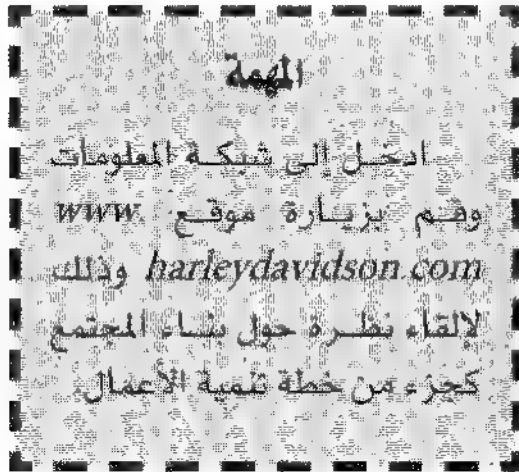 المهمة
ادخل إلى شبكة المعلومات
وقم بزيارة موقع www.
harleydavidson.com وذلك
لإلقاء نظرة حول بناء المجتمع
كجزء من خطة تنمية الأعمال.